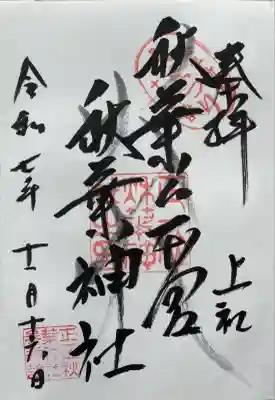 奉拝
上社
秋葉山本宮
秋葉神社
令和七年十一月十六日